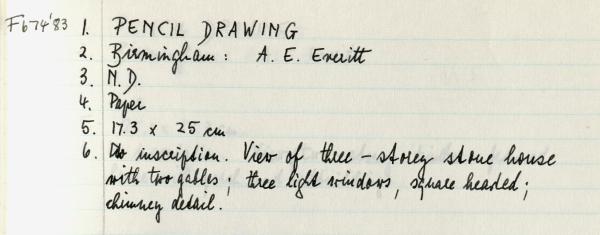 F674'83 1. PENCIL DRAWING
2. Birmingham: A. E. Everitt
3. N.D.
4. Paper
5. 17.3 x 25 cm
6. No inscription. View of three-storey stone house
with two gables; three light windows, square headed;
chimney detail.